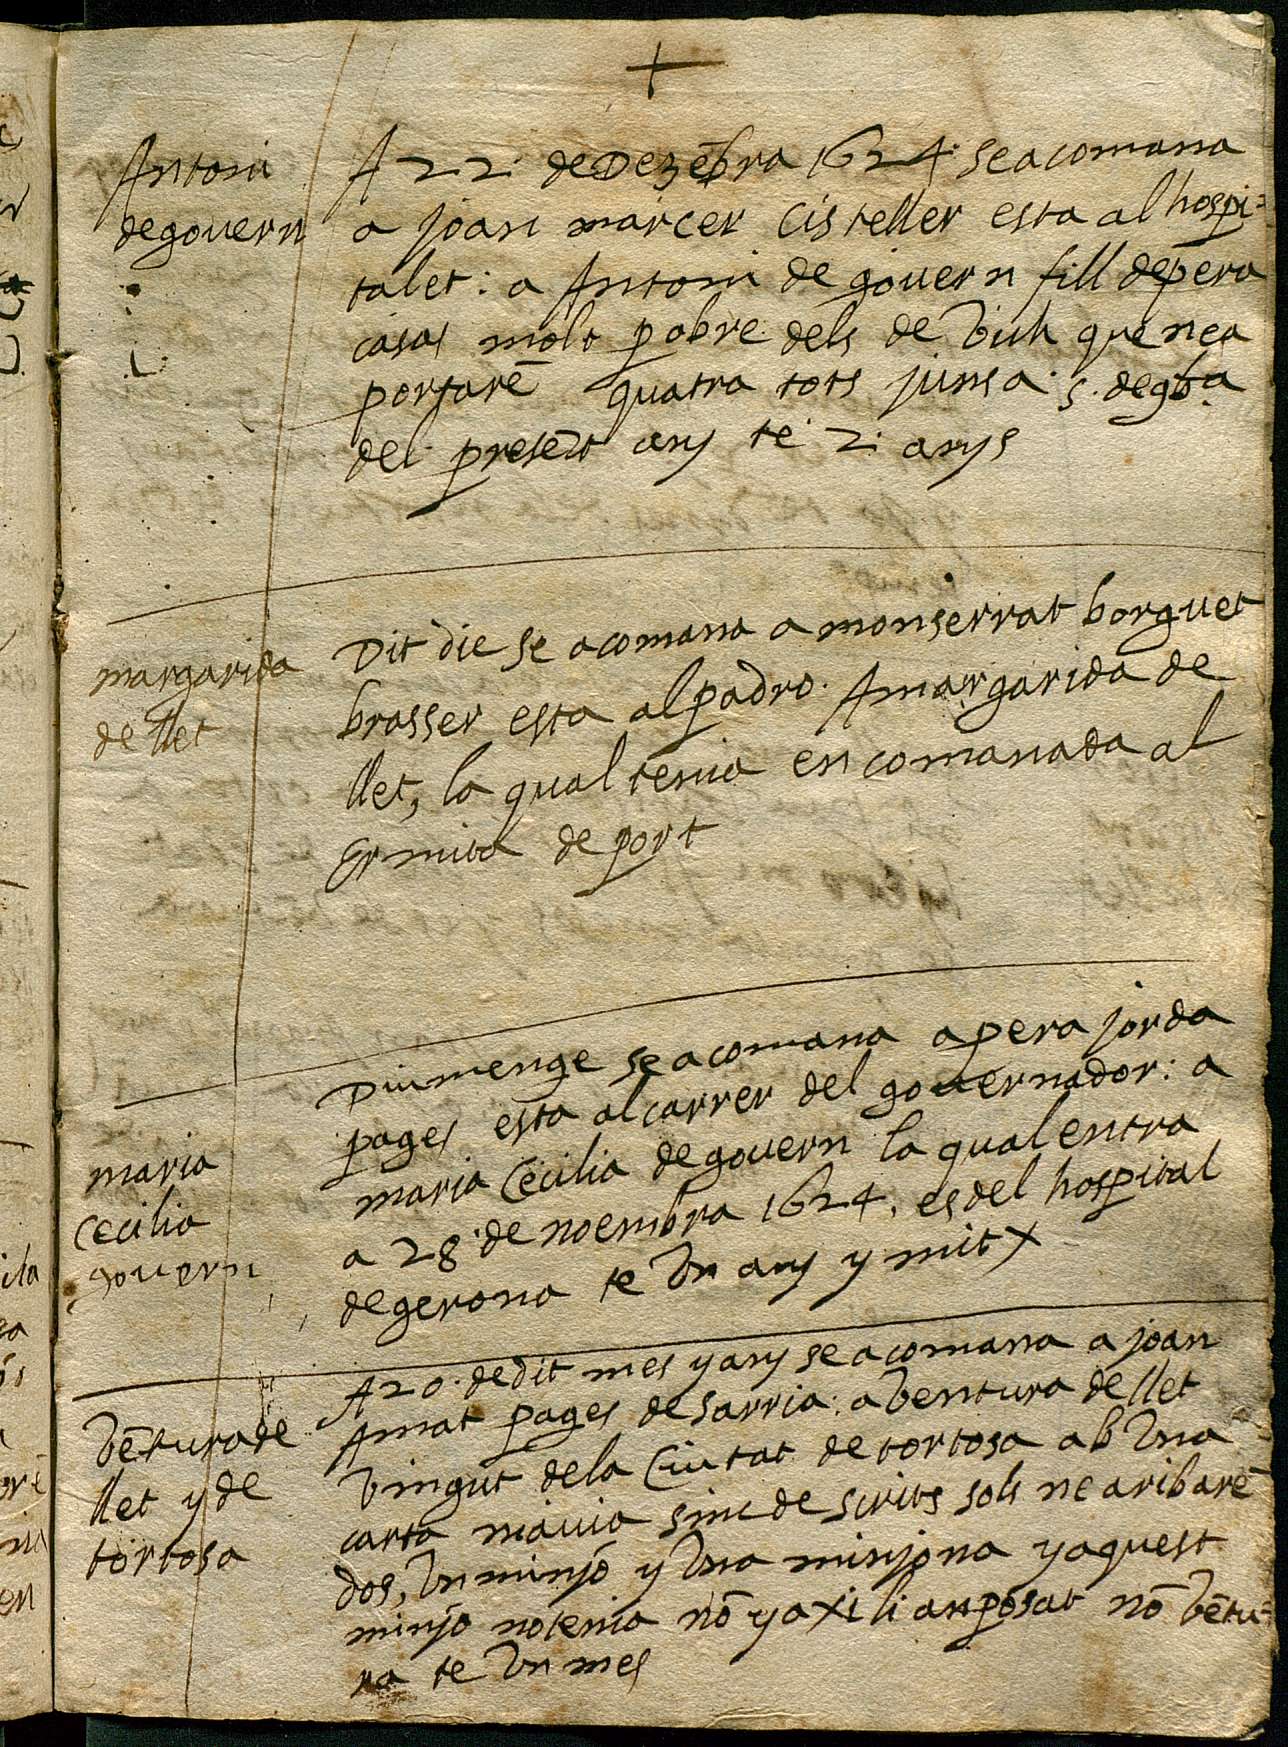 +
Antoni
de govern
A 22 de Dezẽbra 1624 se acomana
a joan marcer cisteller esta al hospi=
talet: a Antoni de govern fill de pera
casas molt pobre dels de Vich que nea
portarẽ quatra tots juns a 5. de 9bra
del presẽt any te 2 anys
margarida
de llet
Dit die se acomana a monserrat borguet
brasser esta al padro. A margarida de
llet, la qual tenia encomanada al
Ermita de port
maria
Cecilia
govern
Diumenge se acomana a pera jorda
pages esta al carrer del governador: a
maria Cecilia de govern la qual entra
a 28 de noembra 1624. es del hospital
de gerona te Un any y mitx
Vẽtura de
llet y de
tortosa
A 20 de dit mes y any se acomana a joan
Amat pages de Sarria: a Ventura de llet
Vingut de la Ciutat de tortosa ab Una
carta niavia sinc de scrits sols ne aribarẽ
dos, Un minjo y Una minjona y aquest
minjo no tenia nõ y axi li an posat nõ Vẽtu=
ra te Un mes